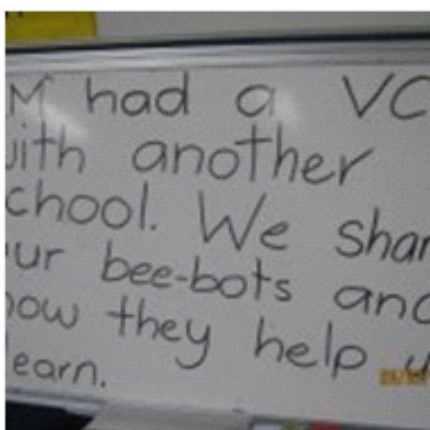 M had a VC
with another
school. We shar
ur bee-bots and
how they help u
learn.